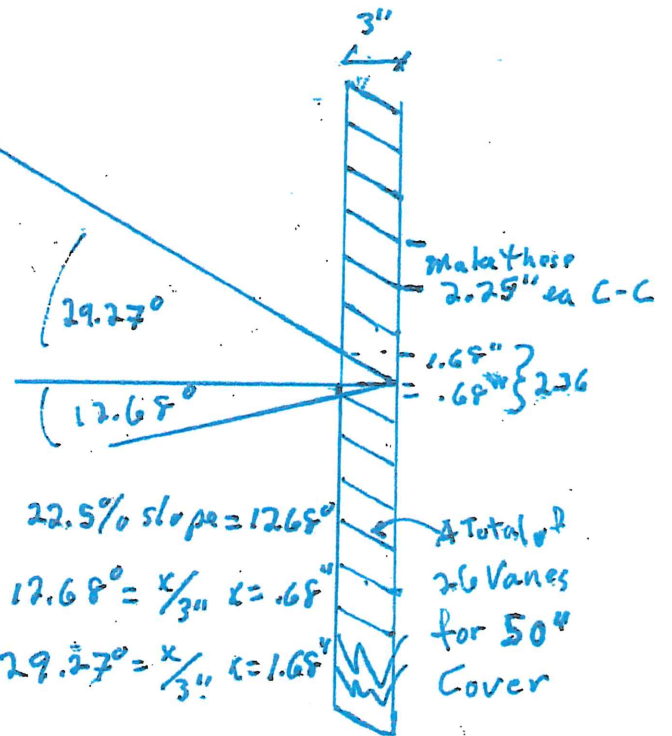 3"
Make those
2.25" ea C-C
29.27°
1.68"
.68" } 2.36
12.68°
22.5% slope = 12.68°
12.68° = x/3" x = .68"
29.27° = x/3" x = 1.68"
A Total of
26 Vanes
for 50"
Cover